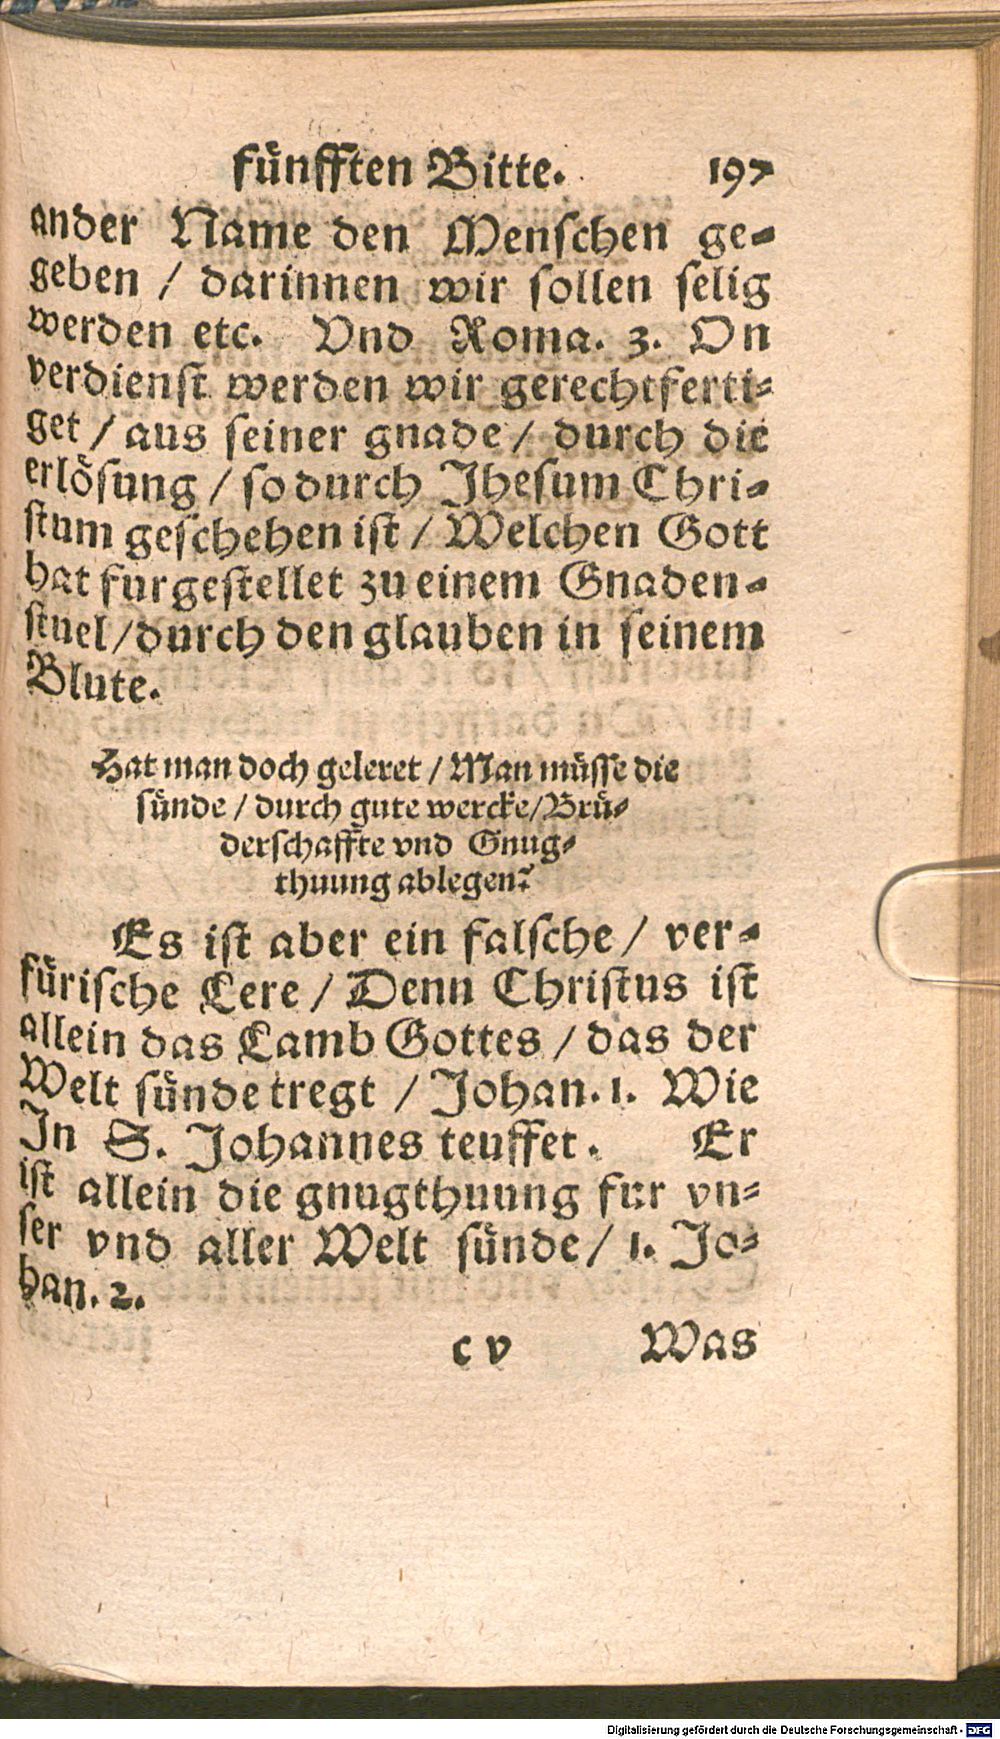 fünfften Bitte. 197
ander Name den Menschen ge-
geben / darinnen wir sollen selig
werden etc. Vnd Roma. 3. On
verdienst werden wir gerechtferti-
get / aus seiner gnade / durch die
erlösung / so durch Jhesum Chri-
stum geschehen ist / Welchen Gott
hat furgestellet zu einem Gnaden-
stuel / durch den glauben in seinem
Blute.
Hat man doch geleret / Man müsse die
sünde / durch gute wercke / Brü-
derschaffte vnd Gnug-
thuung ablegen?
Es ist aber ein falsche / ver-
fürische Lere / Denn Christus ist
allein das Lamb Gottes / das der
Welt sünde tregt / Johan. 1. Wie
Jn S. Johannes teuffet. Er
ist allein die gnugthuung fur vn-
ser vnd aller Welt sünde / 1. Jo-
han. 2.
c v Was
Digitalisierung gefördert durch die Deutsche Forschungsgemeinschaft - DFG